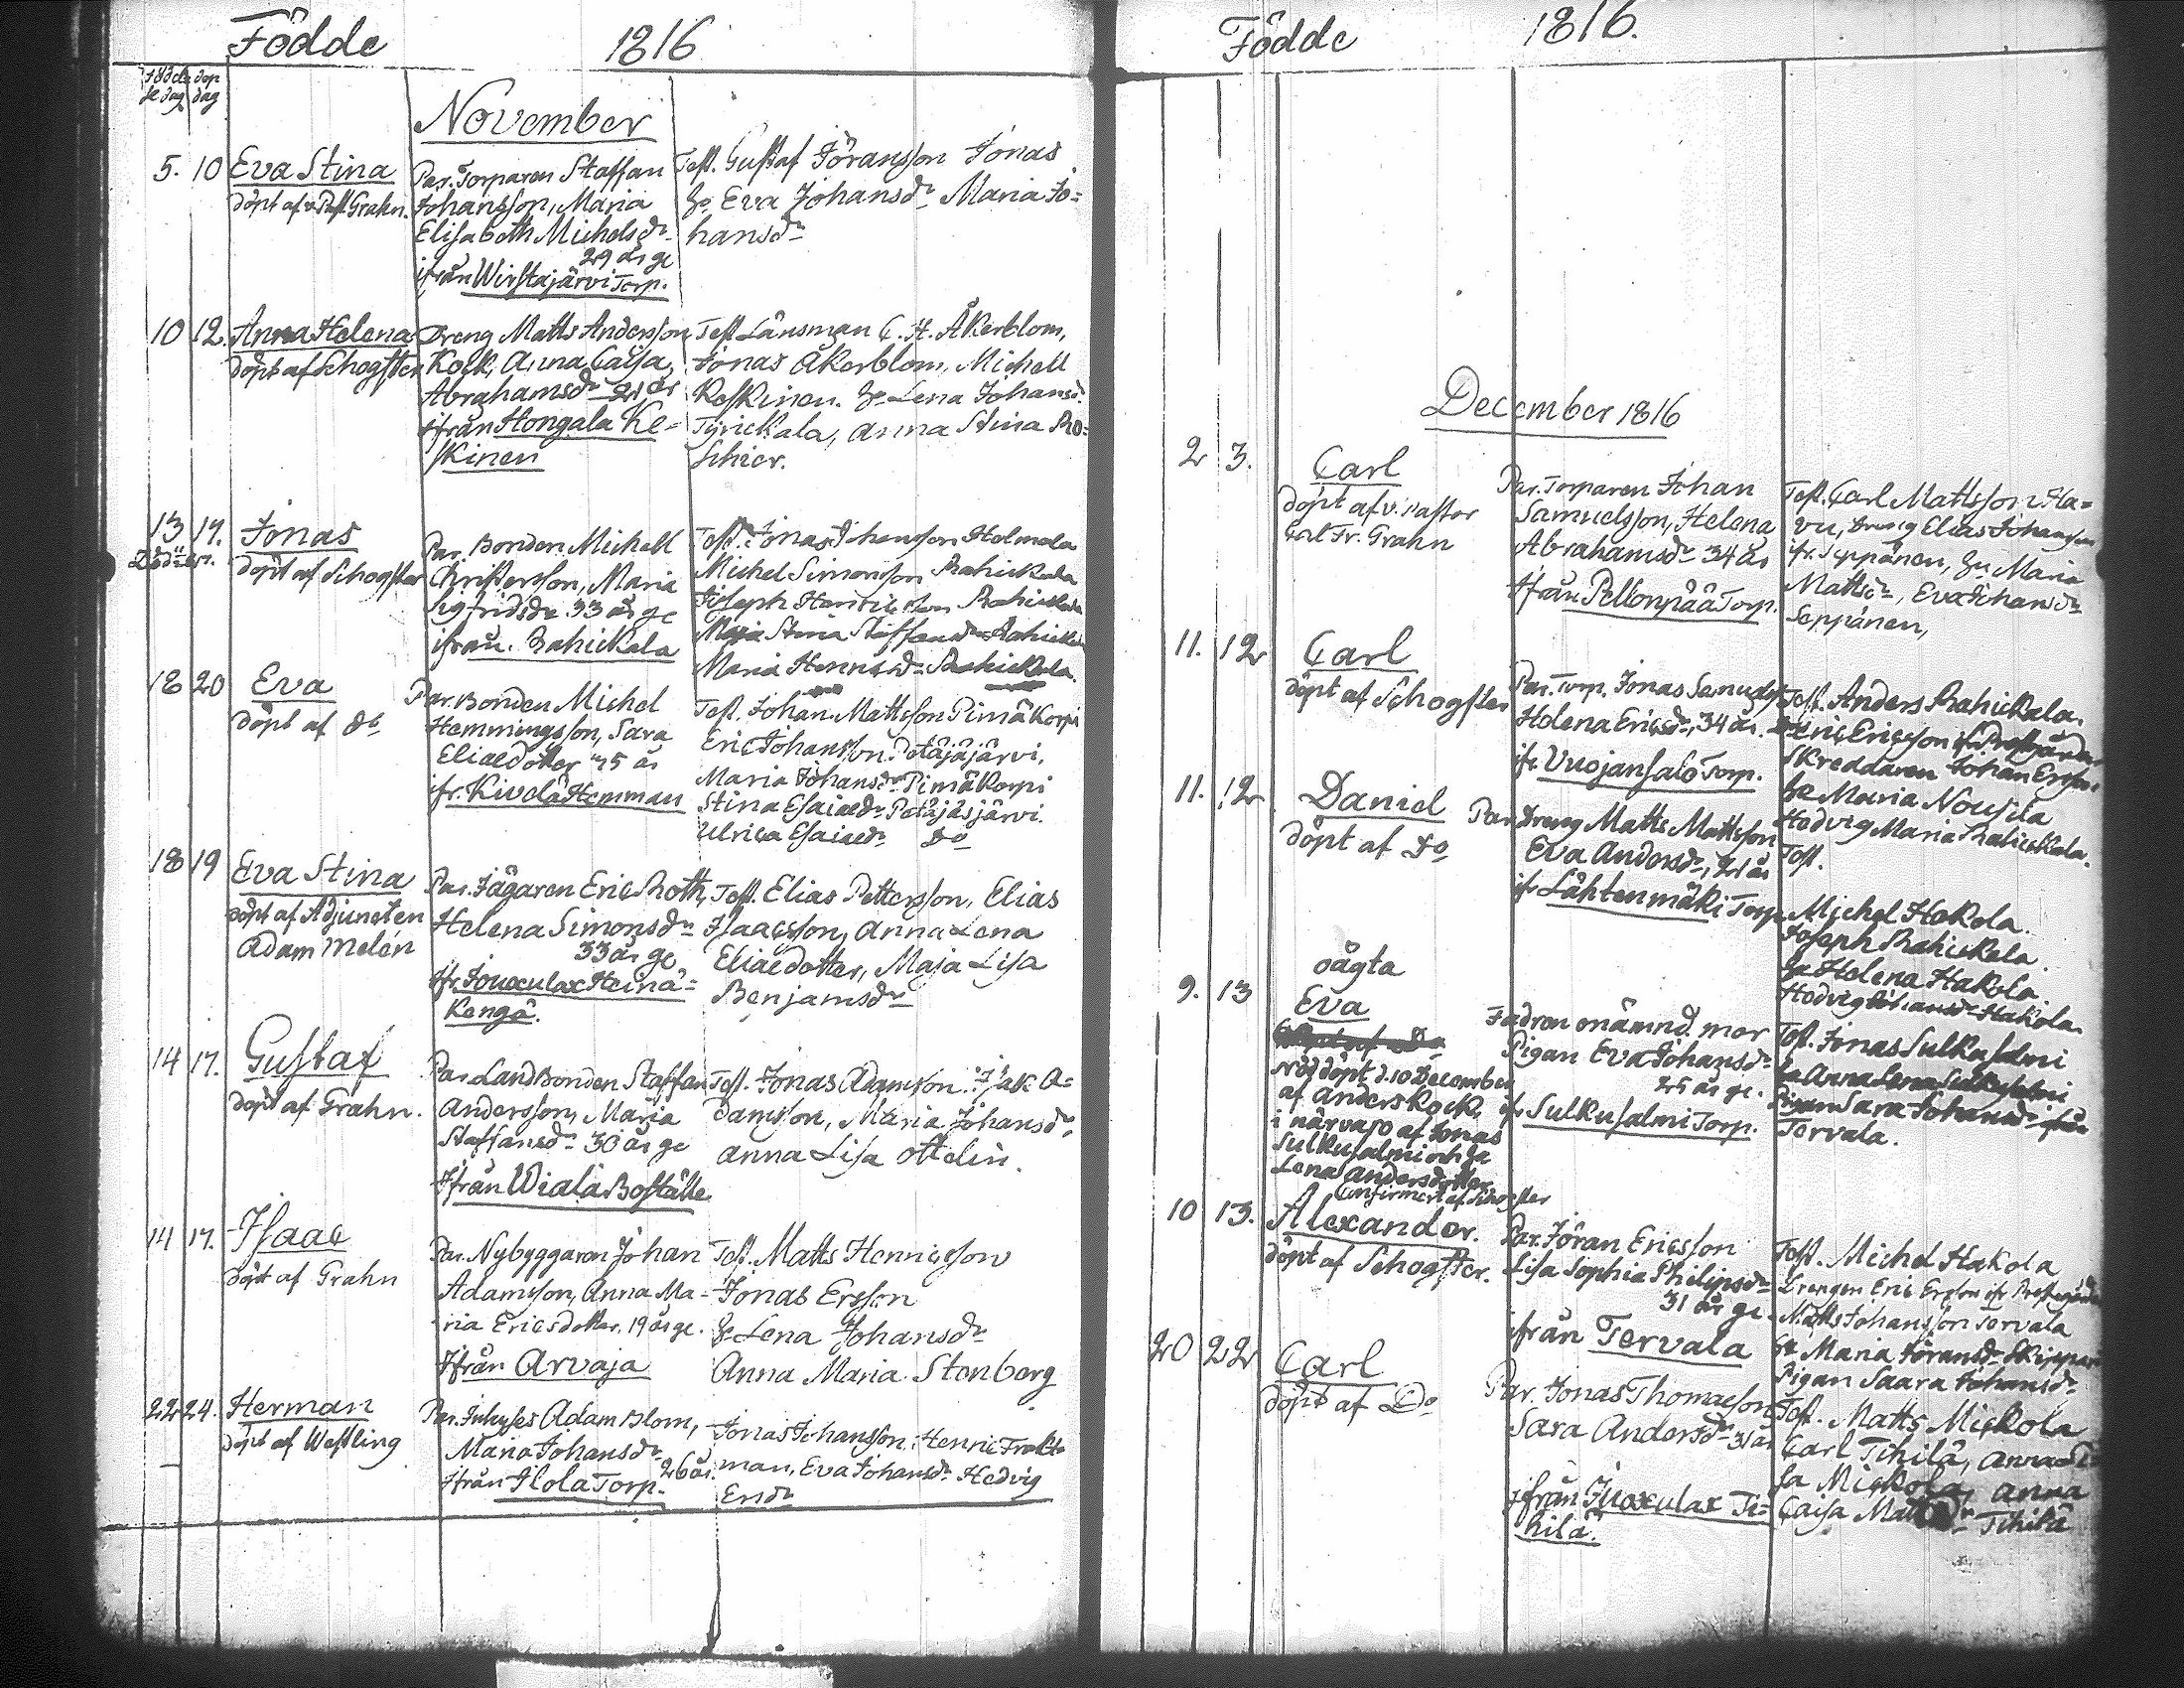 Födde 1816
födelse dag dop dag
November
5. 10 Eva Stina
döpt af v. Past. Grahn.
Par. Torparen Staffan
Johansson, Maria
Elisabeth Michelsdr
29 år ge
ifrån Wirstajärvi Torp.
Test. Gustaf Göransson Jonas
Hu Eva Johansdr Maria Jo=
hansdr
10 12. Anna Helena
döpt af Schogster
Dreng Matts Andersson
Kock, Anna Caisa
Abrahamsdr 21 år
ifrån Hongala Ke=
skinen
Test Länsman C. H. Åkerblom,
Jonas Åkerblom, Michell
Keskinen. Hu Lena Johansd.
Tyrickala, Anna Stina Ro=
schier.
13 17. Jonas
döpt af Schogster
Par. Bonden Michell
Christersson, Maria
Sigfridsdr 33 år ge
ifrån. Rahickala
Test. Jonas Johansson Holmola
Michel Simonsson Rahickala
Joseph Henricsson Rahickala
Maja Stina Staffansdr Rahickala
Maria Hennsdr Rahickala.
18 20 Eva
döpt af do
Par. Bonden Michel
Hemmingsson, Sara
Eliaedotter 45 år
ifr. Kivelä Hemman
Test. Johan Mattsson Pimäkorpi
Eric Johansson. Petäjäjärvi,
Maria Johansdr Pimäkorpi
Stina Esaiaedr Petäjäsjärvi.
Ulrica Esaiaedr Do
18 19 Eva Stina
döpt af Adjuncten
Adam Melén
Par. Jägaren Eric Roth,
Helena Simonsdr
33 år ge
ifr. Jouxulax Heinä=
kengä.
Test. Elias Pettersson, Elias
Isaacsson, Anna Lena
Eliaedotter, Maja Lisa
Benjamsdr
14 17. Gustaf
döpt af Grahn.
Par. Landbonden Staffan
Andersson, Maria
Staffansdr 30 år ge
Ifrån Wiala Boställe
Test. Jonas Adamsson. Isak A=
damsson, Maria Johansdr,
Anna Lisa Ottelin.
14 17. Isaac
döpt af Grahn
Par. Nybyggaren Johan
Adamsson, Anna Ma=
ria Ericsdotter. 19 år ge.
Ifrån Arvaja
Test. Matts Henricsson
Jonas Ersson
Hu Lena Johansdr
Anna Maria Stenberg
22 24. Herman
döpt af Westling
Par. Inhyses Adam Blom,
Maria Johansdr
26 år.
ifrån Ilola Torp.
Jonas Johansson, Henric
man, Eva Johansdr Hedvig
Ersdr
Födde 1816.
December 1816
2 3. Carl
döpt af v. Pastor
Carl Fr. Grahn
Par. Torparen Johan
Samuelsson, Helena
Abrahamsdr 34 år
Ifrån Pellonpää Torp.
Test. Carl Mattsson Ha=
vu, dreng Elias Johansson
ifr. Seppänen, Hu Maria
Mattsdr, Eva Johansdr
Seppänen,
11. 12 Carl
döpt af Schogster
Par. Torp. Jonas Samuelss.
Helena Ericsdr, 34 år.
ifr Vuojansalo Torp.
Test. Anders Rahickala.
Eric Ericsson ifr Prestgården
Skreddaren Johan Ersson
Hu Maria Nousila
Hedvig Maria Rahickala.
11. 12 Daniel
döpt af Do
Par. Dreng Matts Mattsson
Eva Andersdr, 21 år
ifr Lähtenmäki Torp.
Test.
Michel Hakola.
Joseph Rahickala.
Hu Helena Hakola
Hedvig Johansdr Hakola.
9. 13 oägta
Eva
Nöddöpt d. 10 December
af Anders Kock,
i närvaro af Jonas
Sulkusalmi och Hu
Lena Andersdotter
Confirmert af Schogster
Fadren onämnd. mor
Pigan Eva Johansdr
25 år ge.
ifr Sulkusalmi Torp.
Test. Jonas Sulkusalmi
Hu Anna Lena Sulkusalmi
Pigan Sara Johansdr ifrån
Tervala.
10 13. Alexander.
döpt af Schogster.
Par. Jöran Ericsson
Lisa Sophia Philipsdr
31 år ge.
ifrån Tervala
Test. Michel Hakola
Drengen Eric Ersson ifr Prestgården
Matts Johansson Tervala
Hu Maria Joransdr
Pigan Saara Johansdr
20 22 Carl
döpt af Do
Par. Jonas Thomaesson
Sara Andersdr 31 år
ifrån Juoxulax Ti=
hilä.
Test. Matts Mickola
Carl Tihilä, Anna
sa Mickola, Anna
Caisa Tihilä